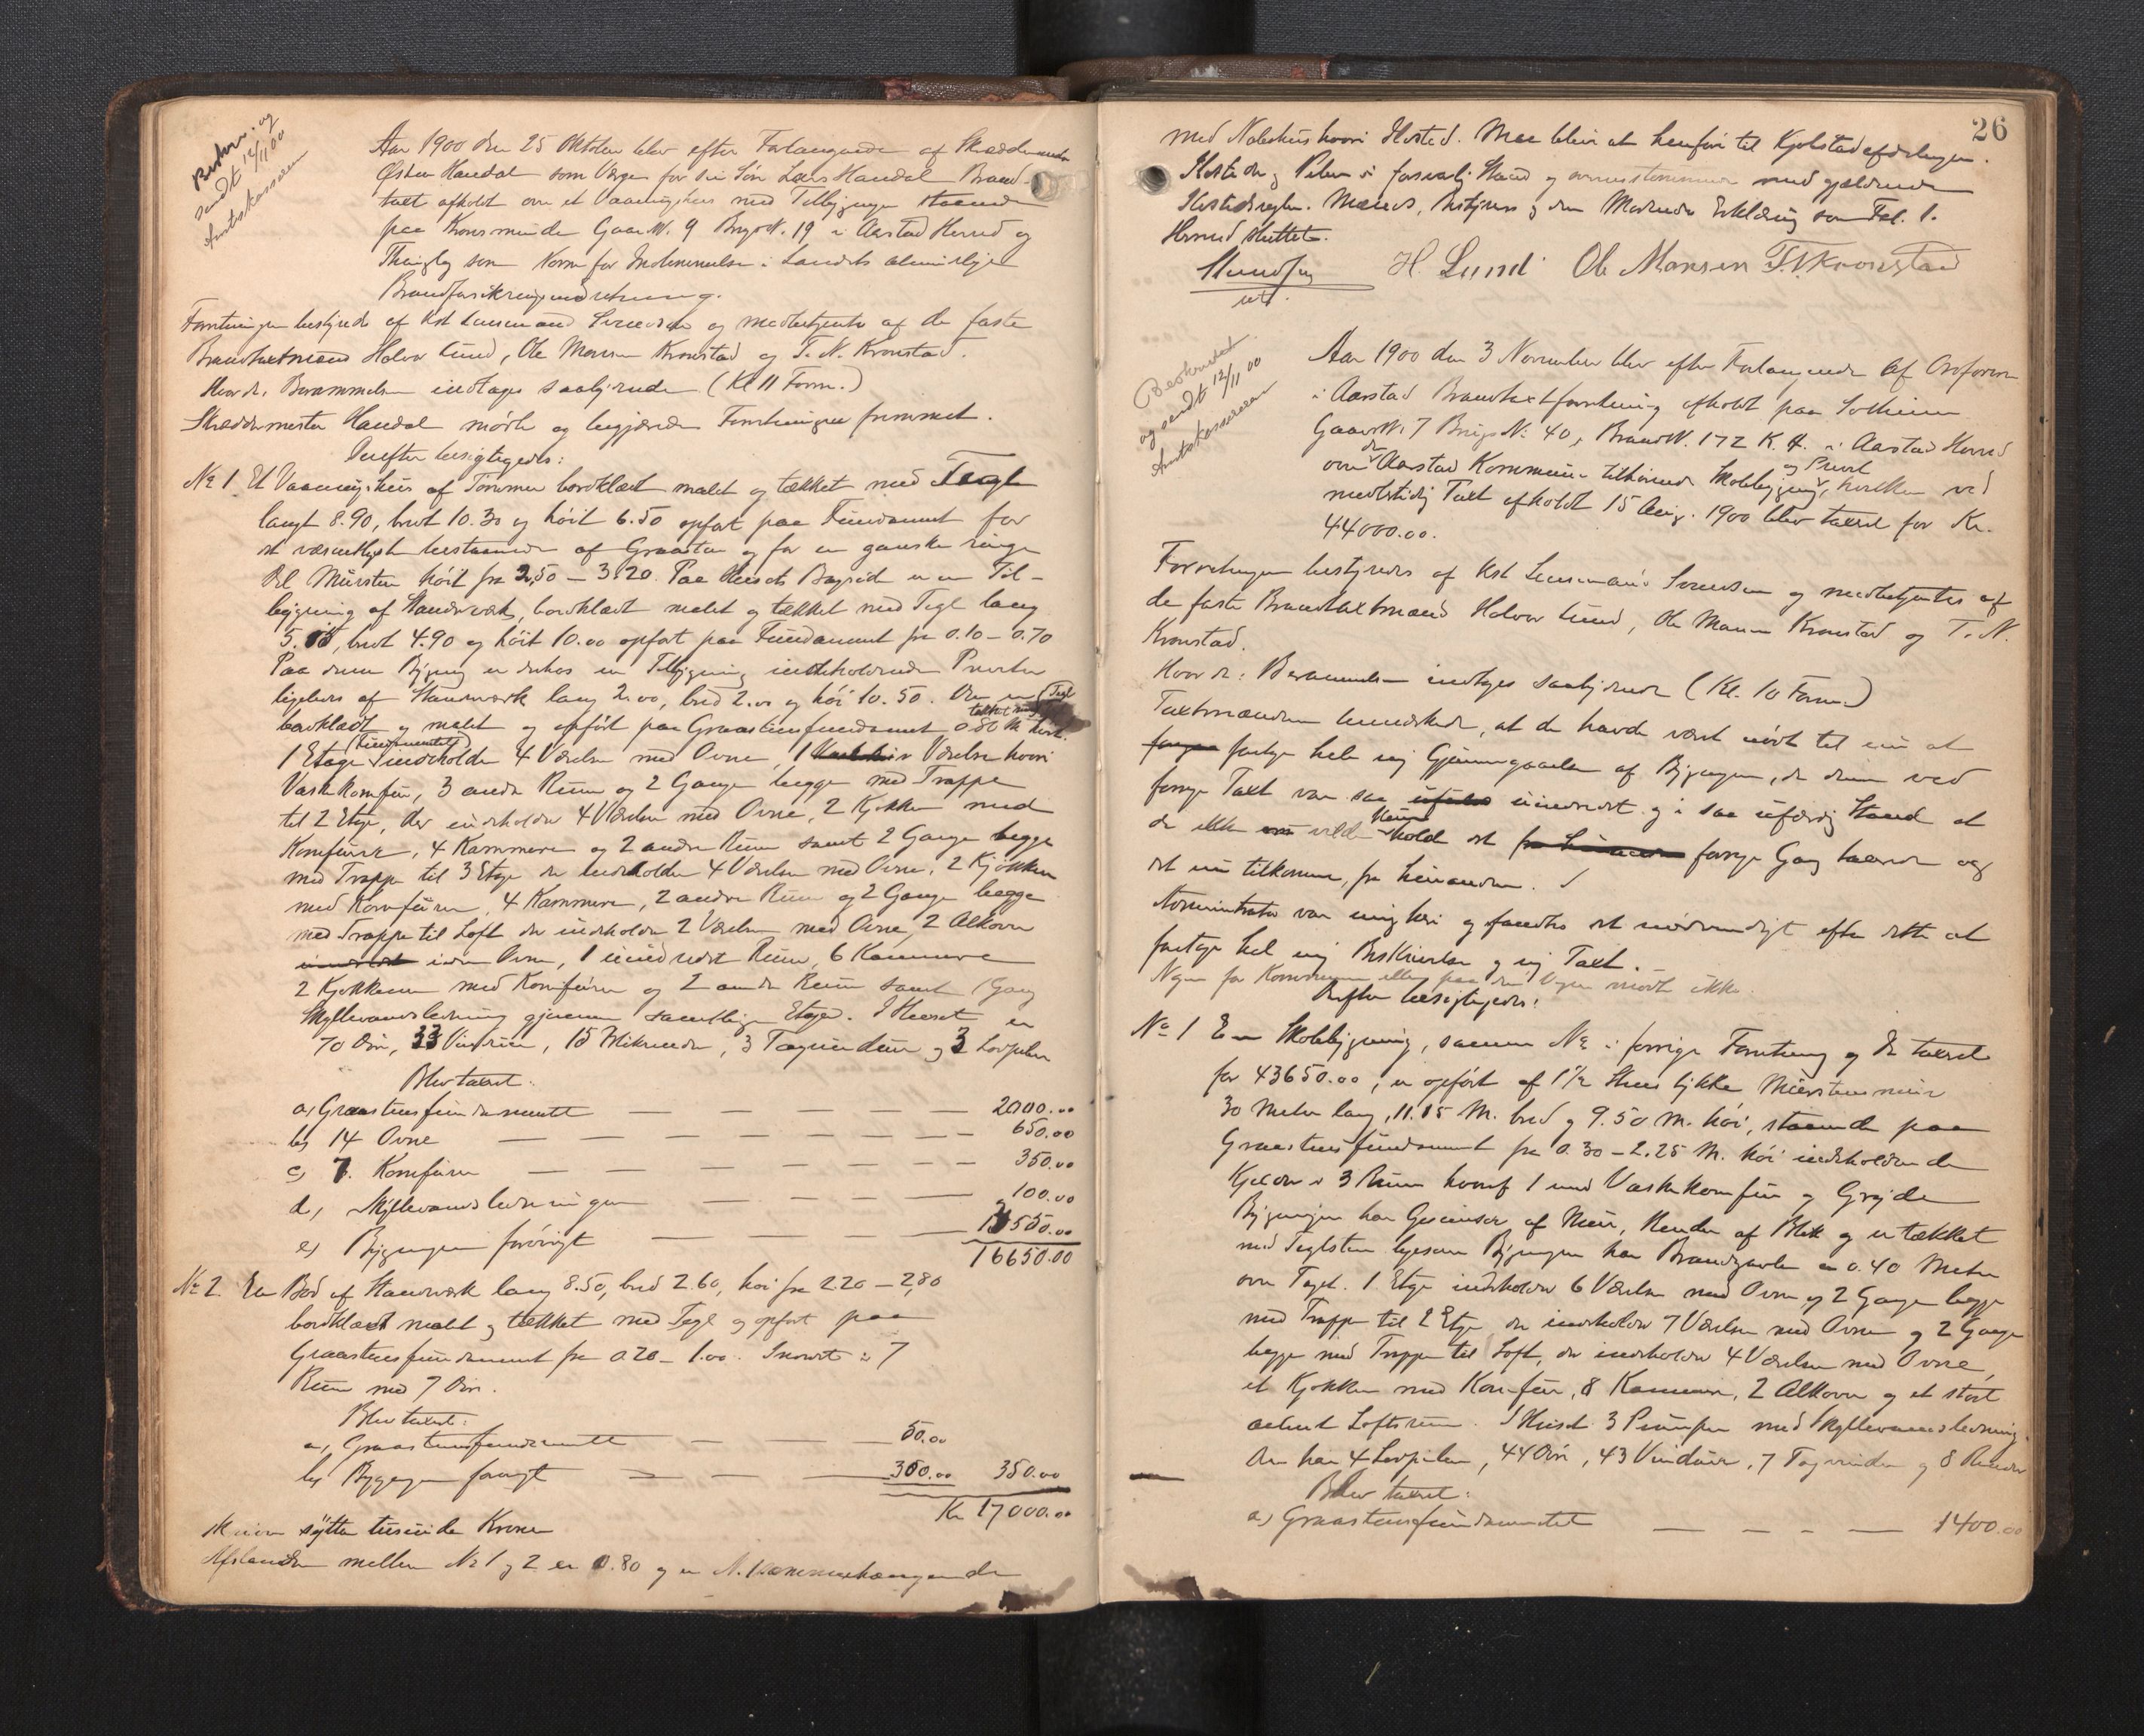 Beskr. og
sendt 12/11 00
Amtskassereren
Aar 1900 den 25 Oktober blev efter Forlangende af Skræddermester
Østen Handal som Værge for sin Søn Lars Handal Brand-
taxt afholdt over et Vaaningshus med Tilbygninger staaende
paa Kronsminde Gaards N. 9 Brugs N. 19 i Aarstad Herred og
Thinglag som Norm for Indlemmelse i Landets almindelige
Brandforsikringsindretning.
Forretningen bestyredes af Kst Lensmand Svendsen og medbetjentes af de faste
Brandtaxtmænd Halvor Lund, Ole Monsen Kronstad og T. N. Kronstad.
Hvor da: Berammelsen indtages saalydende (Kl 11 Form.)
Skræddermester Handal mødte og begjærede Forretningen fremmet.
Derefter besigtigedes:
No 1 Et Vaaningshus af Tømmer bordklædt malet og tækket med Tegl
langt 8.90, bredt 10.30 og høit 6.50 opført paa Fundament for
det væsentligste bestaaende af Graasten og for en ganske ringe
Del Mursten høit fra 2,50 – 3.20. Paa Husets Bagside er en Til-
bygning af Standværk, bordklædt malet og tækket med Tegl lang
5. , bredt 4.90 og høit 10.00 opført paa Fundament fra 0.10 – 0.70
Paa denne Bygning er derhos en Tilbygning indeholdende Priveter
ligeledes af Standværk lang 2.00, bred 2.00 og høi 10.50. Den er (Tegl
bordklædt og malet og opført paa Graastensfundament tækket med 0.80 M høit.
1 Etage (Fundamentet) indeholder 4 Værelser med Ovne, 1 Værelse hvori
Vaskekomfur, 3 andre Rum og 2 Gange begge med Trappe
til 2 Etage, der indeholder 4 Værelser med Ovne, 2 Kjøkken med
Komfurer, 4 Kammere og 2 andre Rum samt 2 Gange begge
med Trappe til 3 Etage der indeholder 4 Værelser med Ovne, 2 Kjøkken
med Komfurer, 4 Kammere, 2 andre Rum og 2 Gange begge
med Trappe til Loft der indeholder 2 Værelser med Ovne, 2 Alkover
uden Ovne, 1 uindredet Rum, 6 Kammere
2 Kjøkkener med Komfurer og 2 andre Rum samt Gang
Skyllevandsledning gjennem samtlige Etager. I Huset er
70 Døre, 33 Vinduer, 15 Blikrender, 3 Tagvinduer og 3 Lovpiber
Blev taxeret:
a, Graastensfundamentet — — — — — 2000.00
b, 14 Ovne — — — — — — — 650.00
c, 7. Komfurer — — — — — — 350.00
d, Skyllevandsledningen — — — — 100.00
e, Bygningen forøvrigt — — — — 13550.00
16650.00
No 2. En Bod af Standværk lang 8.50, bred 2.60, høi fra 2.20 – 2,80
bordklædt malet og tækket med Tegl og opført paa
Graastensfundament fra 0.20 – 1.00. Indredet i 7
Rum med 7 Døre.
Blev taxeret:
a, Graastensfundamentet — — — 50.00
b, Bygningen forøvrigt — — — 300.00 350.00
Kr 17000.00
skriver sytten tusinde Kroner
Afstanden mellem No 1 og 2 er 0.80 og er N. 1 sammenhængende
26
med Nabohus hvori Ildsted. Maa blive at henføre til Kjøbstadafdelingen.
Ildsteder og Piber i forsvarlig Stand og overensstemmende med gjældende
Ildstedsregler. Mænds, Bestyrers og den Mødendes Erklæring som Fol. 1.
Hermed sluttet.
Svendsen H. Lund Ole Monsen T. N. Kronstad
cst.
Beskrevet
og sendt 12/11 00
Amtskassereren
Aar 1900 den 3 November blev efter Forlangende af Ordføreren
i Aarstad Brandtaxtforretning afholdt paa Solheim
Gaards N. 7 Brugs No 40, Brand N. 172 K. A. i Aarstad Herred
over den Aarstad Kommune tilhørende Skolebygning og Privet, hvilken ved
modstridig Taxt afholdt 15 Aug. 1900 blev taxeret for Kr.
44000.00.
Forretningen bestyredes af Kst Lensmand Svendsen og medbetjentes af
de faste Brandtaxtmænd Halvor Lund, Ole Monsen Kronstad og T. N.
Kronstad.
Hvor da: Berammelsen indtages saalydende (Kl. 10 Form.)
Taxtmændene bemærkede, at de havde været nødt til nu at
foretage hel ny Gjennemgaaelse af Bygningen, da denne ved
forrige Taxt var saa uindredet og i saa ufærdig Stand at
de ikke vilde kunne holde det forrige Gang taxerede og
det nu tilkomne, fra hinanden.
Administrator var enig heri og fandtes det nødvendigt efter dette at
foretage hel ny Beskrivelse og ny Taxt.
Nogen for Kommunen eller paa dens Vegne mødte ikke.
Derefter besigtigedes:
No 1 En Skolebygning, samme No i forrige Forretning og da taxeret
for 43650.00, er opført af 1 1/2 Stens tykke Murstensmure
30 Meter lang, 11.15 M. bred og 9.50 M. høi, staaende paa
Graastensfundament fra 0.30 – 2.25 M. høi indeholdende
Kjælder i 3 Rum hvoraf 1 med Vaskekomfur og Gryde
Bygningen har Gesimser af Mur, Render af Blik og er tækket
med Teglsten ligesom Bygningen har Brandgavle 0.40 Meter
over Taget. 1 Etage indeholder 6 Værelser med Ovne og 2 Gange begge
med Trappe til 2 Etage der indeholder 7 Værelser med Ovne og 2 Gange
begge med Trappe til Loft, der indeholder 4 Værelser med Ovne,
et Kjøkken med Komfur, 8 Kammere, 2 Alkover og et stort
aabent Loftsrum. I Huset 3 Pumper med Skyllevandsledning.
Den har 4 Lovpiber, 44 Døre, 43 Vinduer, 7 Tagvinduer og 8 Render
Blev taxeret:
a, Graastensfundamentet — — — — 1400.00